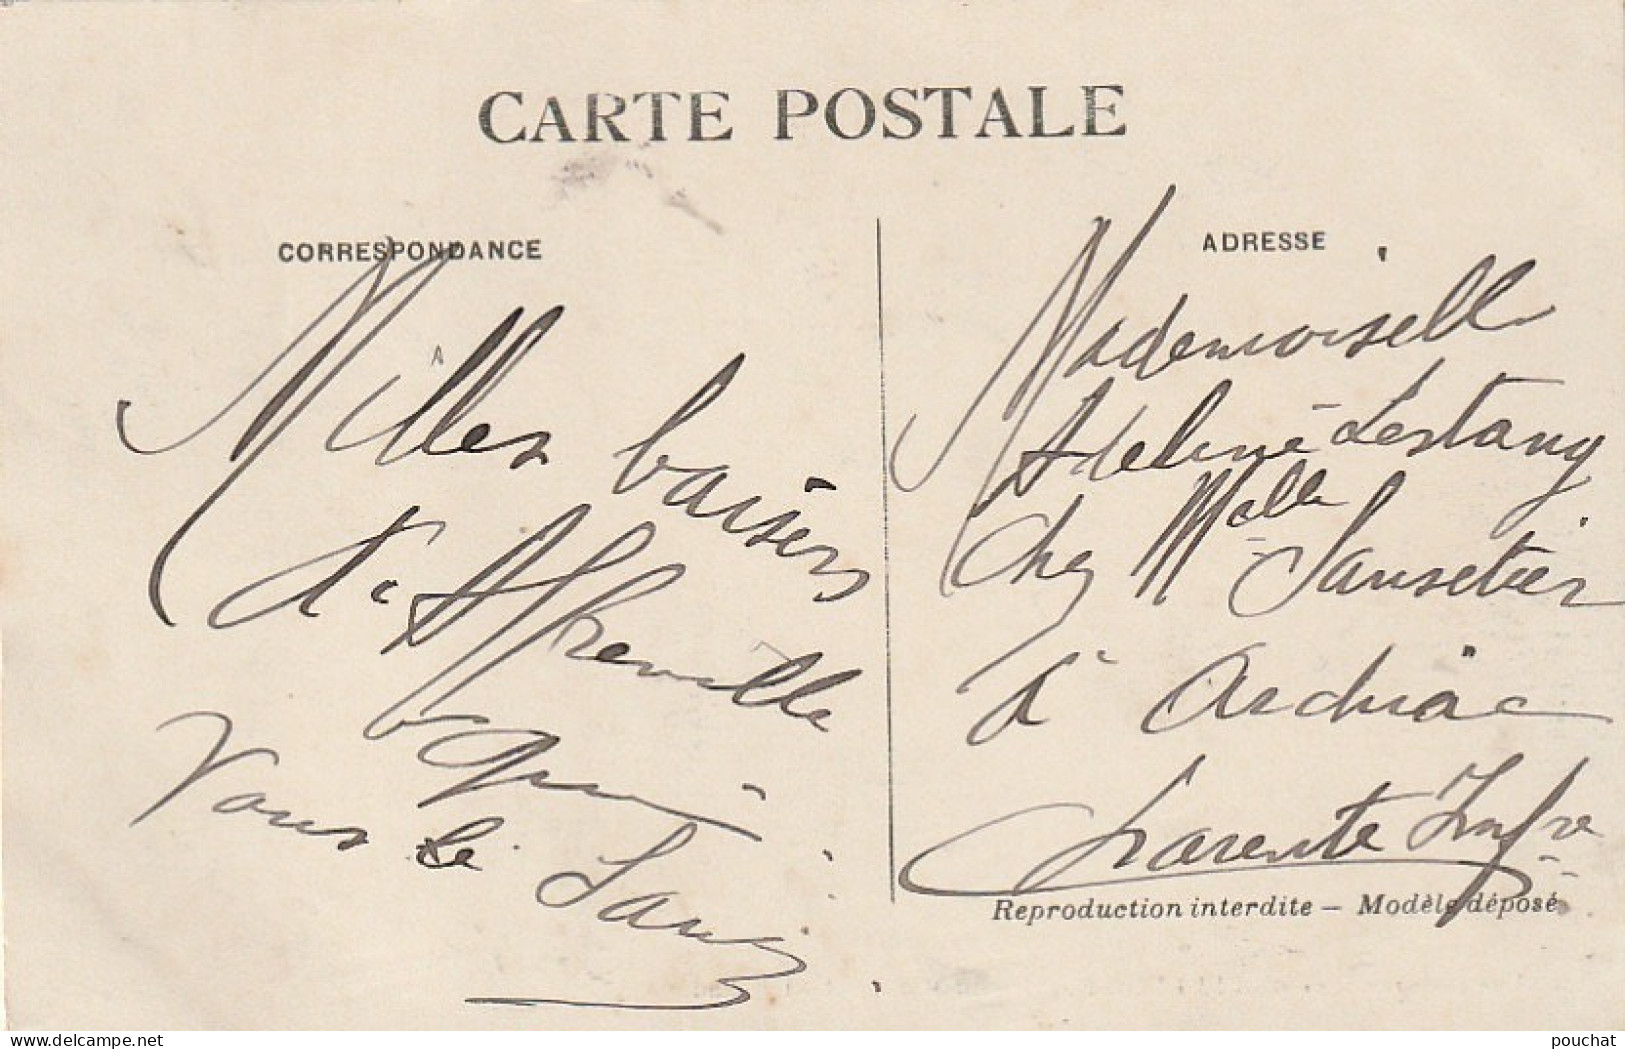 CARTE POSTALE
CORRESPONDANCE
Milles baisers
d'Abbeville
qui
Vous le
ADRESSE
Mademoiselle
Adeline Lestang
Chez Melle Sausetier
à Archiac
Charente Infre
Reproduction interdite – Modèle déposé
www.delcampe.net
pouchat